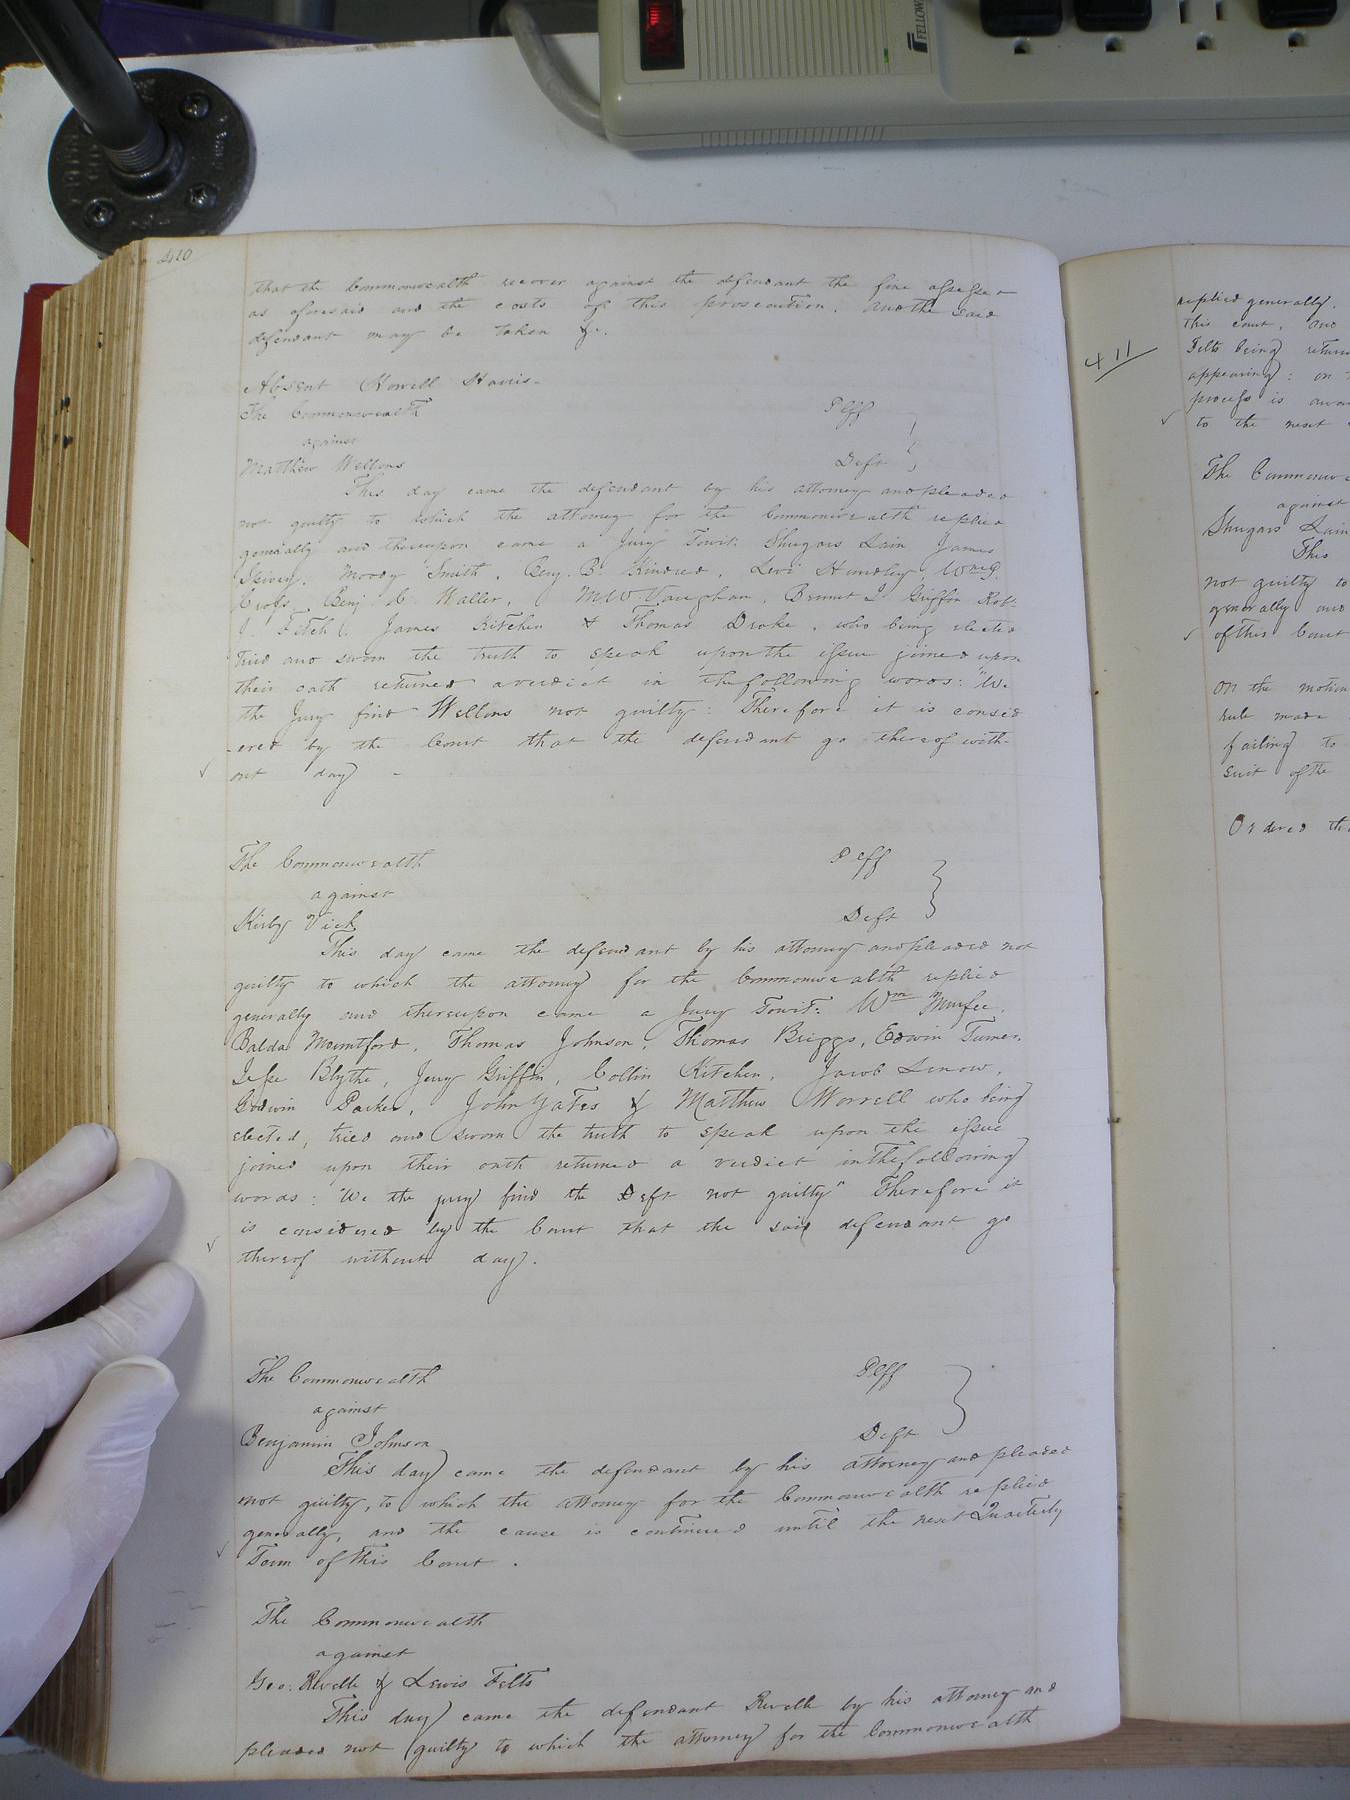 410
that the Commonwealth recover against the defendant the fine assessed
as aforesaid and the costs of this prosecution. And the said
defendant may be taken &c.
Absent Howell Harris.
The Commonwealth Plff
against
Matthew Wellons Deft
This day came the defendant by his attorney and pleaded
not guilty to which the attorney for the Commonwealth replied
generally and thereupon came a Jury Towit: Shugars Lain James
Spivey, Moody Smith, Benj. B. Kindred, Levi Hundley, Wm P.
Cross, Benj C Waller, M W Vaughan, Bennet L. Griffin Rob.
J. Fitch, James Kitchen & Thomas Drake, who being elected
tried and sworn the truth to speak upon the issue joined upon
their oath returned a verdict in the following words: "We
the Jury find Wellons not guilty: Therefore it is consid
-ered by the Court that the defendant go thereof with-
out day -
The Commonwealth Plff
against
Kirby Vick Deft
This day came the defendant by his attorney and pleaded not
guilty to which the attorney for the Commonwealth replied
generally and thereupon came a Jury Towit: Wm Murfee,
Balda Mountford, Thomas Johnson, Thomas Briggs, Edwin Turner,
Jesse Blythe, Jerry Griffin, Collin Kitchen, Jacob Lenow,
Godwin Parker, John Yates & Matthew Worrell who being
elected, tried and sworn the truth to speak upon the issue
joined upon their oath returned a verdict in the following
words: "We the jury find the Deft not guilty" Therefore it
is considered by the Court that the said defendant go
thereof without day.
The Commonwealth Plff
against
Benjamin Johnson Deft
This day came the defendant by his attorney and pleaded
not guilty, to which the attorney for the Commonwealth replied
generally, and the cause is continued until the next Quarterly
Term of this Court.
The Commonwealth
against
Geo. Revelle & Lewis Felts
This day came the defendant Revelle by his attorney and
pleaded not guilty to which the attorney for the Commonwealth
411
replied generally.
this court, and
Felts being return
appearing: on
process is awar
to the next
The Commonwe
against
Shugars Lain
This
not guilty to
generally and
of this Court
On the motion
rule made
failing to
suit of the
Ordered th
FELLOW